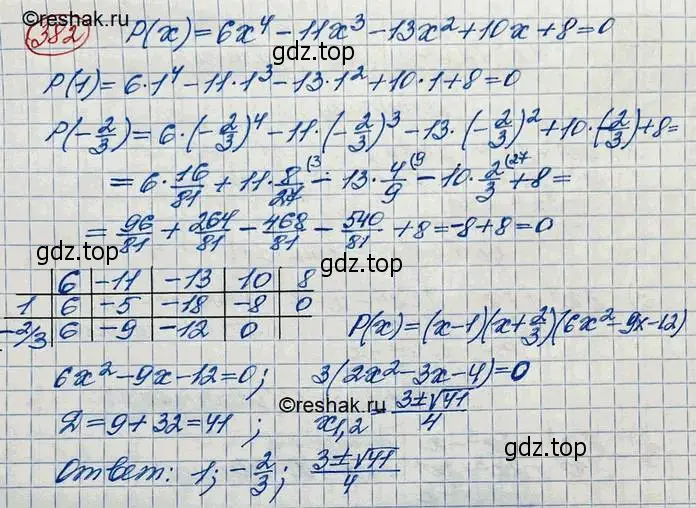 ©reshak.ru
382 P(x)=6x⁴-11x³-13x²+10x+8=0
gdz.top
P(1)=6·1⁴-11·1³-13·1²+10·1+8=0
P(-2/3)=6·(-2/3)⁴-11·(-2/3)³-13·(-2/3)²+10·(-2/3)+8=
=6·16/81+11·8/27(3-13·4/9(9-10·2/3(27+8=
=96/81+264/81-468/81-540/81+8=-8+8=0
gdz.top gdz.top
6 -11 -13 10 8
1 6 -5 -18 -8 0
-2/3 6 -9 -12 0 P(x)=(x-1)(x+2/3)(6x²-9x-12)
6x²-9x-12=0; 3(2x²-3x-4)=0
©reshak.ru
Д=9+32=41; x1,2=3±√41/4
gdz.top
Ответ: 1; -2/3; 3±√41/4
gdz.top